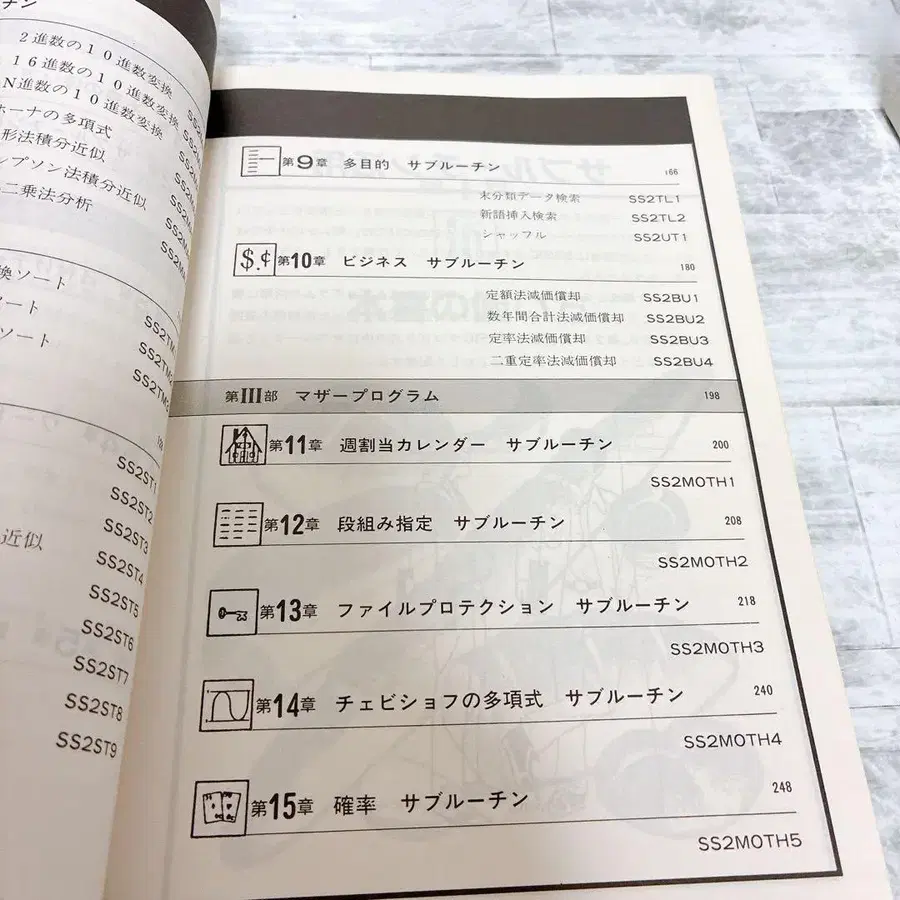 チン
2進数の10進数変換
16進数の10進数変換
N進数の10進数変換
ホーナの多項式
形法積分近似
ンプソン法積分近似
二乗法分析
換ソート
ート
ソート
SS2TM1
SS2TM2
SS2TM3
SS2ST1
SS2ST2
近似
SS2ST3
SS2ST4
SS2ST5
SS2ST6
SS2ST7
SS2ST8
SS2ST9
第9章 多目的 サブルーチン 166
未分類データ検索 SS2TL1
新語挿入検索 SS2TL2
シャッフル SS2UT1
$.¢ 第10章 ビジネス サブルーチン 180
定額法減価償却 SS2BU1
数年間合計法減価償却 SS2BU2
定率法減価償却 SS2BU3
二重定率法減価償却 SS2BU4
第III部 マザープログラム 198
第11章 週割当カレンダー サブルーチン 200
SS2MOTH1
第12章 段組み指定 サブルーチン 208
SS2MOTH2
第13章 ファイルプロテクション サブルーチン 218
SS2MOTH3
第14章 チェビショフの多項式 サブルーチン 240
SS2MOTH4
第15章 確率 サブルーチン 248
SS2MOTH5